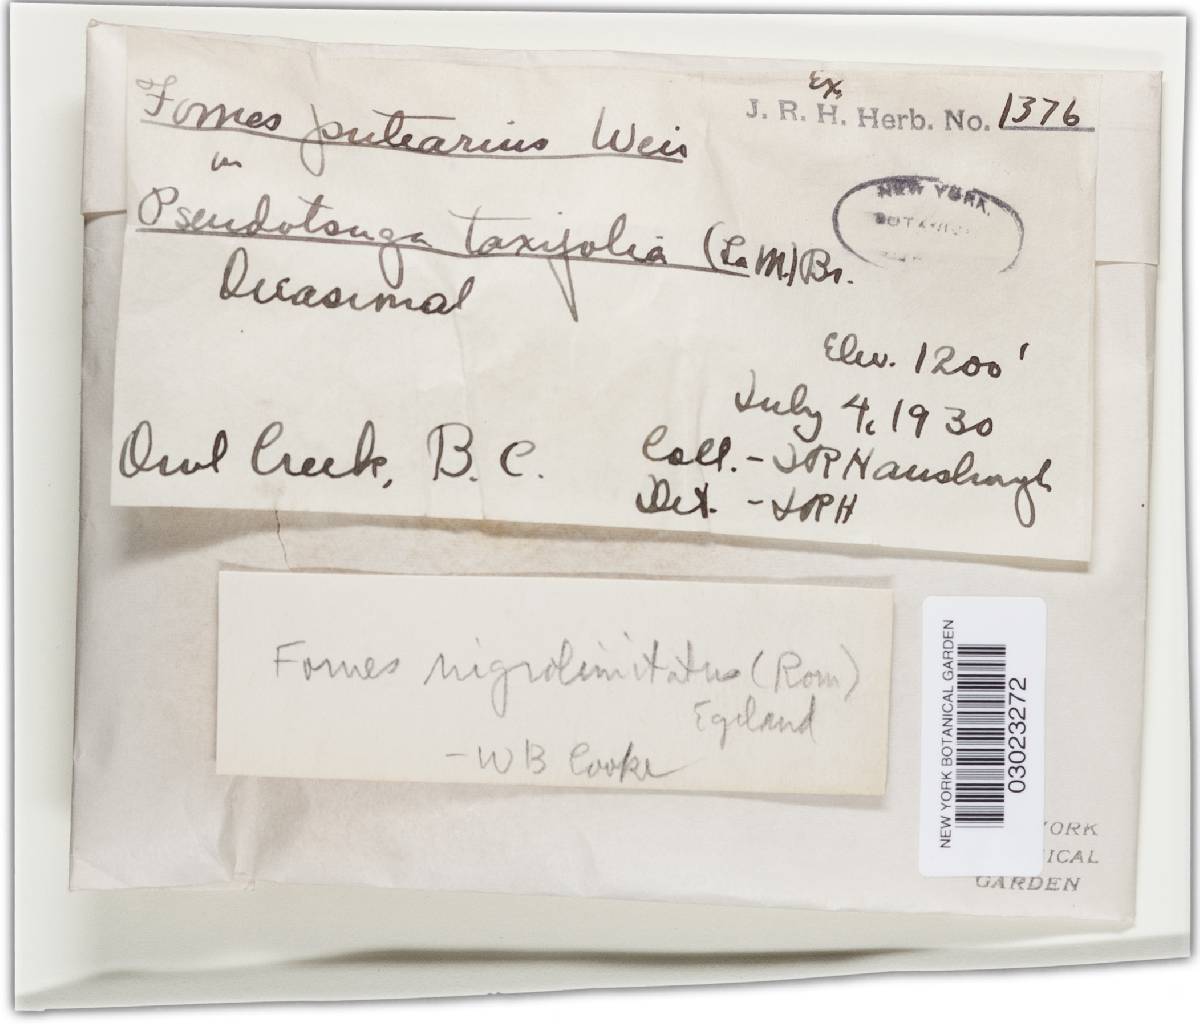 Ex.
J. R. H. Herb. No. 1376
Fomes putearius Weir
on
Pseudotsuga taxifolia (LaM.) Br.
Occasional
NEW YORK
BOTANICAL
Elev. 1200'
July 4, 1930
Owl Creek, B. C.
Coll. - JR Hansbrough
Det. - JRH
Fomes nigrolimitatus (Rom)
Egeland
- WB Cooke
NEW YORK BOTANICAL GARDEN
03023272
YORK
ICAL
GARDEN